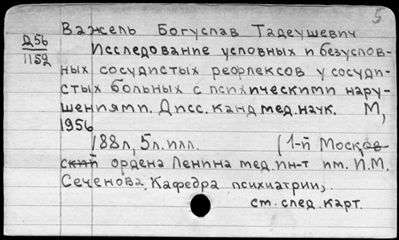 5
Важель Богуслав Тадеушевич
Д56
1152
Исследование условных и безуслов-
ных сосудистых рефлексов у сосуди-
стых больных с психическими нару-
шениями. Дисс. канд мед. наук. М,
1956
188л, 5л. илл. (1-й Москов-
ский ордена Ленина мед. ин-т им. И.М.
Сеченова. Кафедра психиатрии,
ст. след. карт.